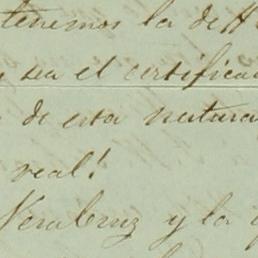 tenemos la de
sea el certifica
de esta natura
real!
Veracruz y la